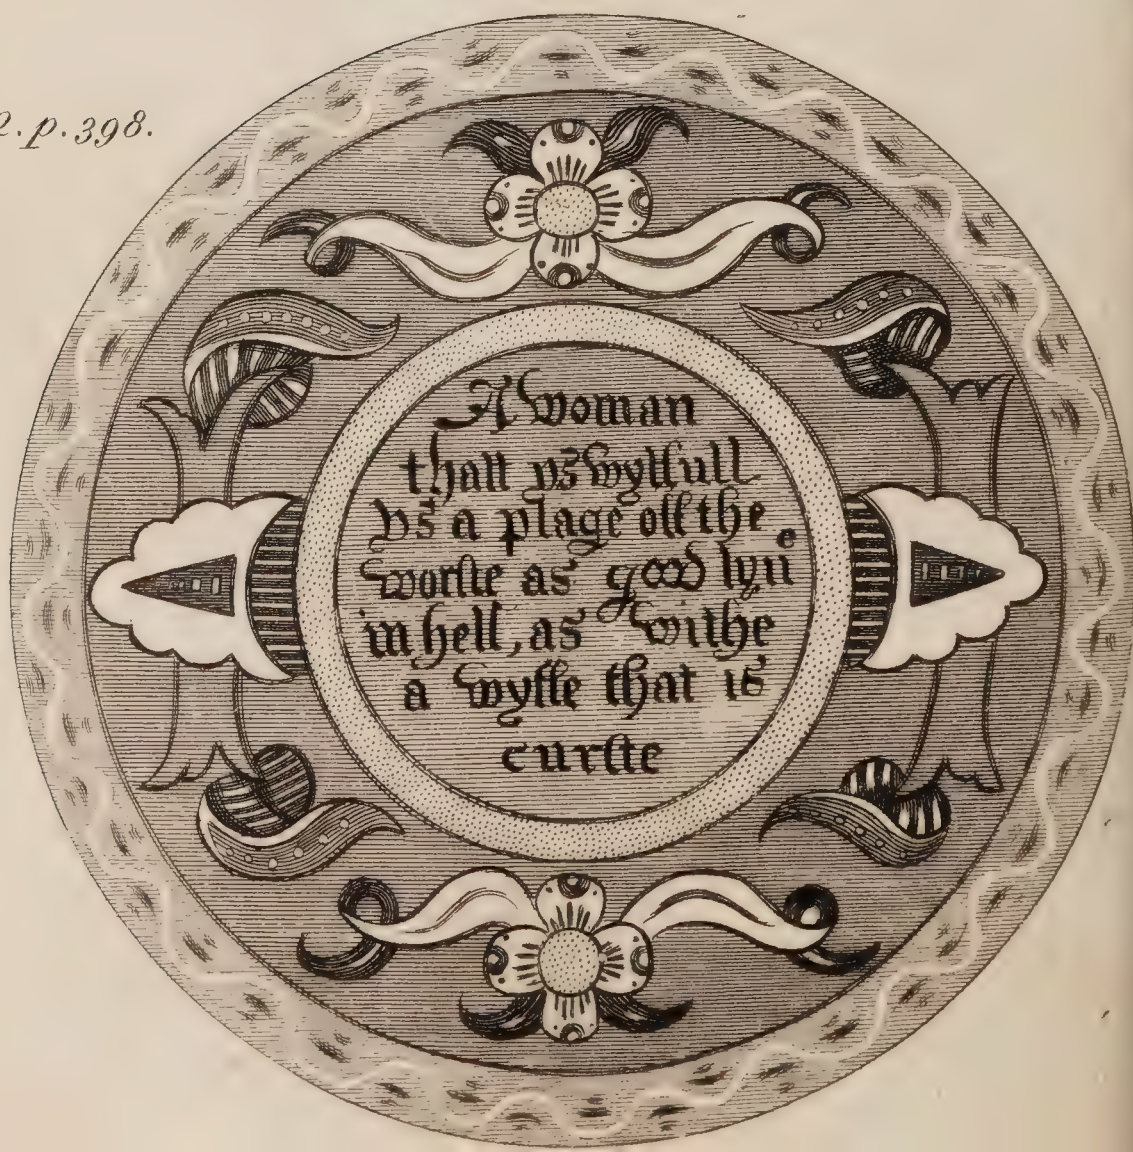 2. p. 398.
A woman
thatt ys wylfull
ys a plage off the
worste as good lyue
in hell, as withe
a wyffe that is
curste